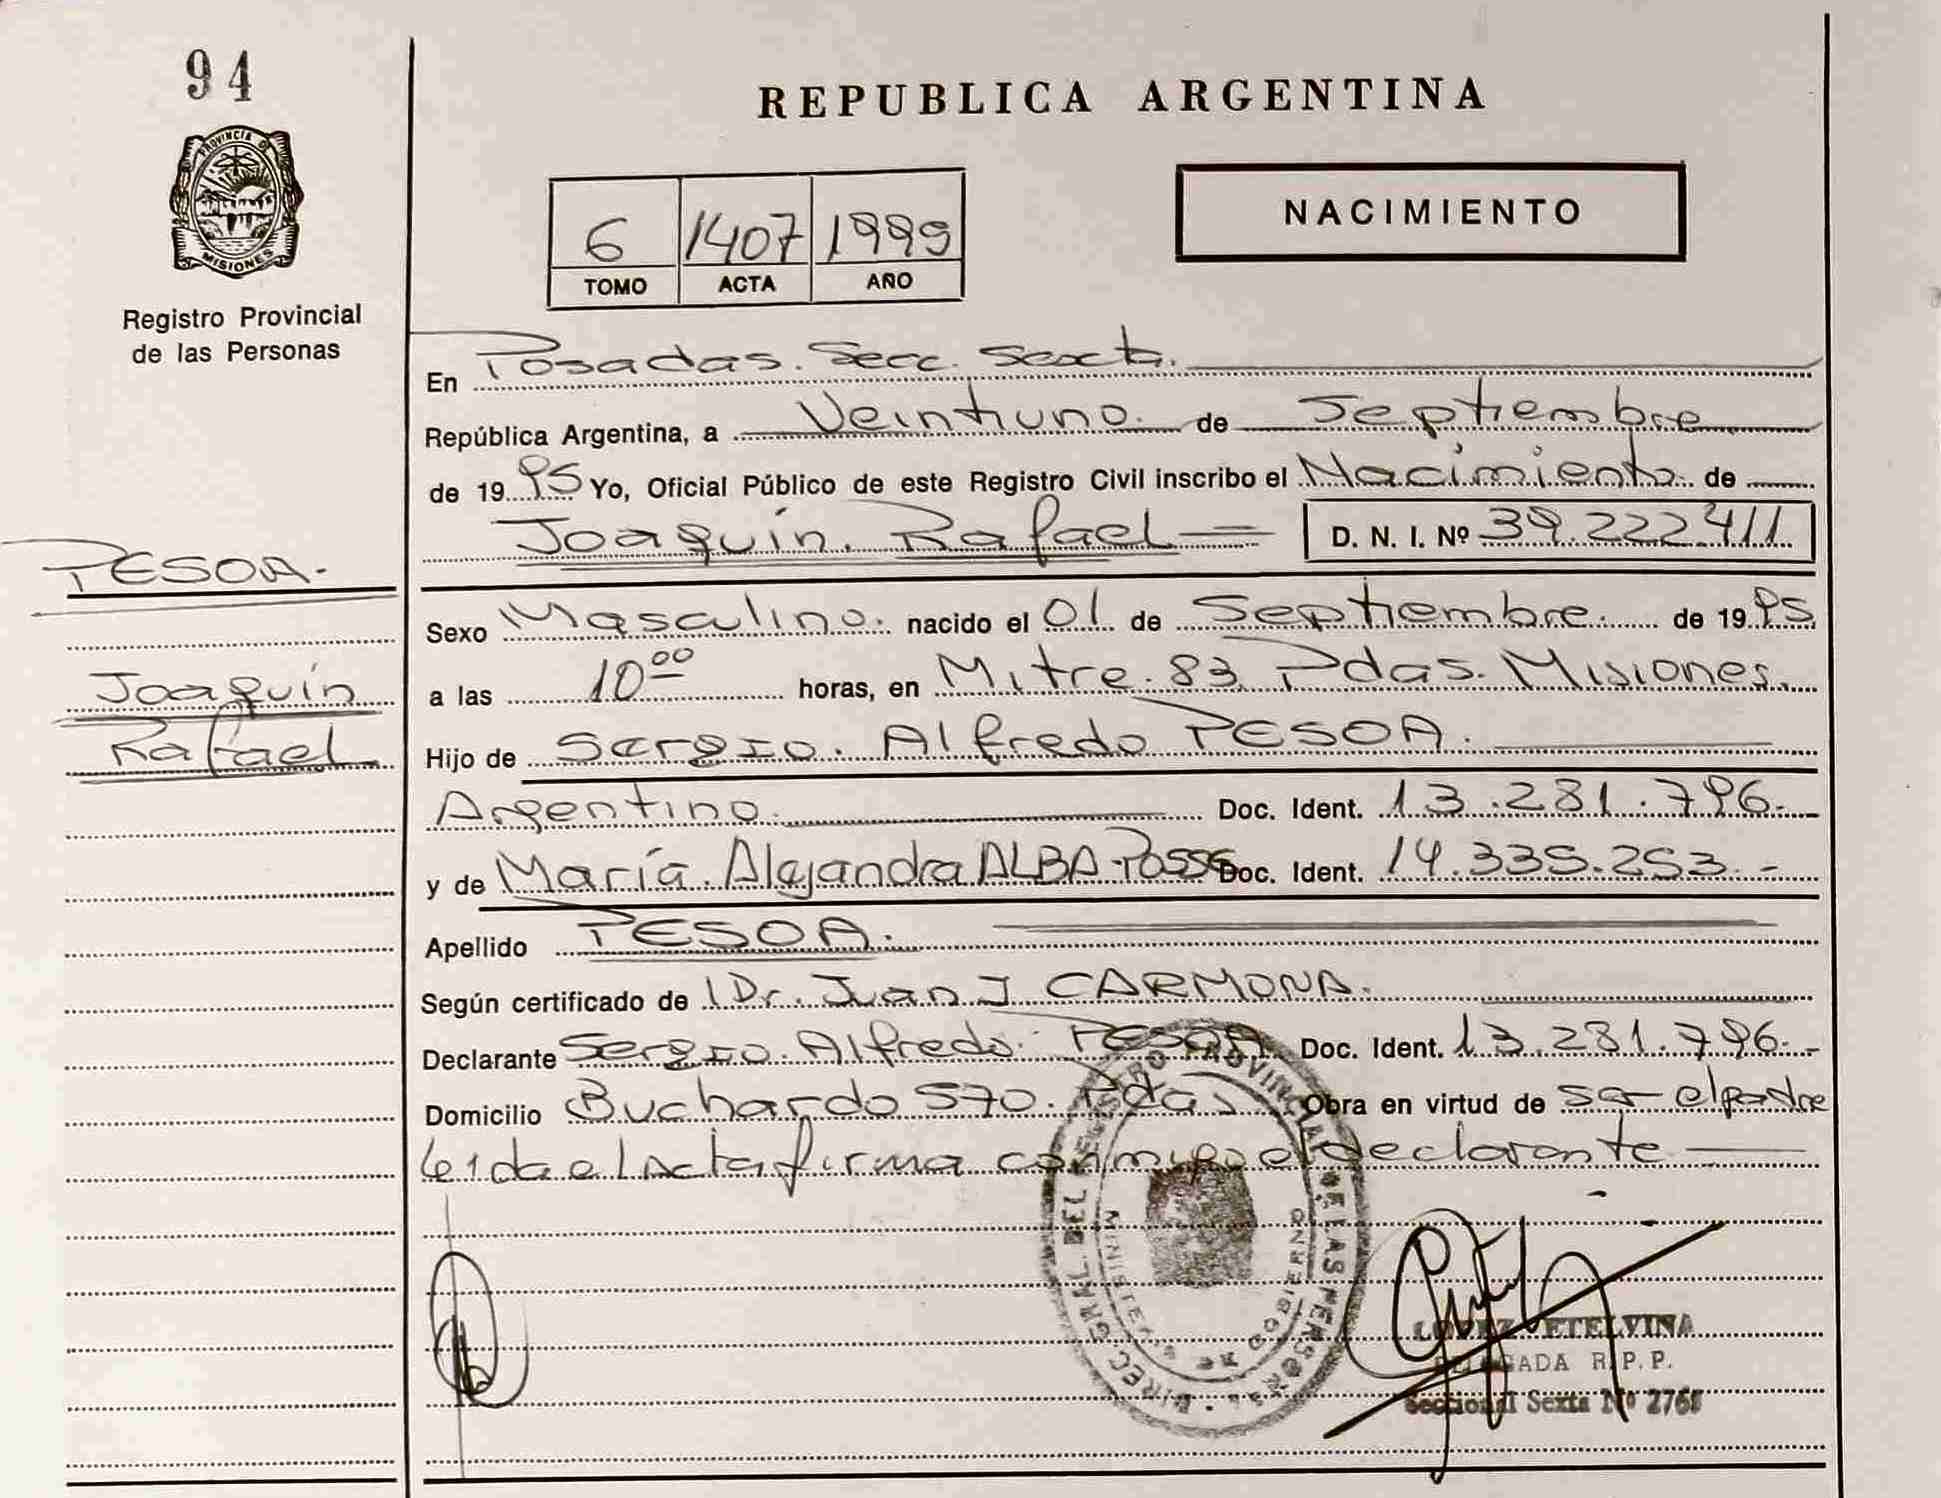 94
REPUBLICA ARGENTINA
PROVINCIA DE
MISIONES
NACIMIENTO
6 1407 1999
TOMO ACTA AÑO
Registro Provincial
de las Personas
En Posadas. Secc. Sexta.
República Argentina, a Veintiuno. de Septiembre
de 1995 Yo, Oficial Público de este Registro Civil inscribo el Nacimiento de
Joaquín. Rafael D. N. I. Nº 39.222.411
PESOA.
Joaquín
Rafael
Sexo Masculino. nacido el 01 de Septiembre. de 1995
a las 10⁰⁰ horas, en Mitre. 83 Pdas. Misiones.
Hijo de Sergio. Alfredo PESOA.
Argentino. Doc. Ident. 13.281.796.-
y de María. Alejandra ALBA POSSE Doc. Ident. 14.335.253.-
Apellido PESOA.
Según certificado de Dr. Juan J CARMONA.
Declarante Sergio. Alfredo. PESOA Doc. Ident. 13.281.796.-
Domicilio Buchardo 570. Pdas Obra en virtud de ser el padre
Leida el Acta firma conmigo el declarante
DIREC. GRAL. DEL REGISTRO PROVINCIAL DE LAS PERSONAS
MINISTERIO DE GOBIERNO
LOPEZ ETELVINA
DELEGADA R.P.P.
Seccional Sexta Nº 2768